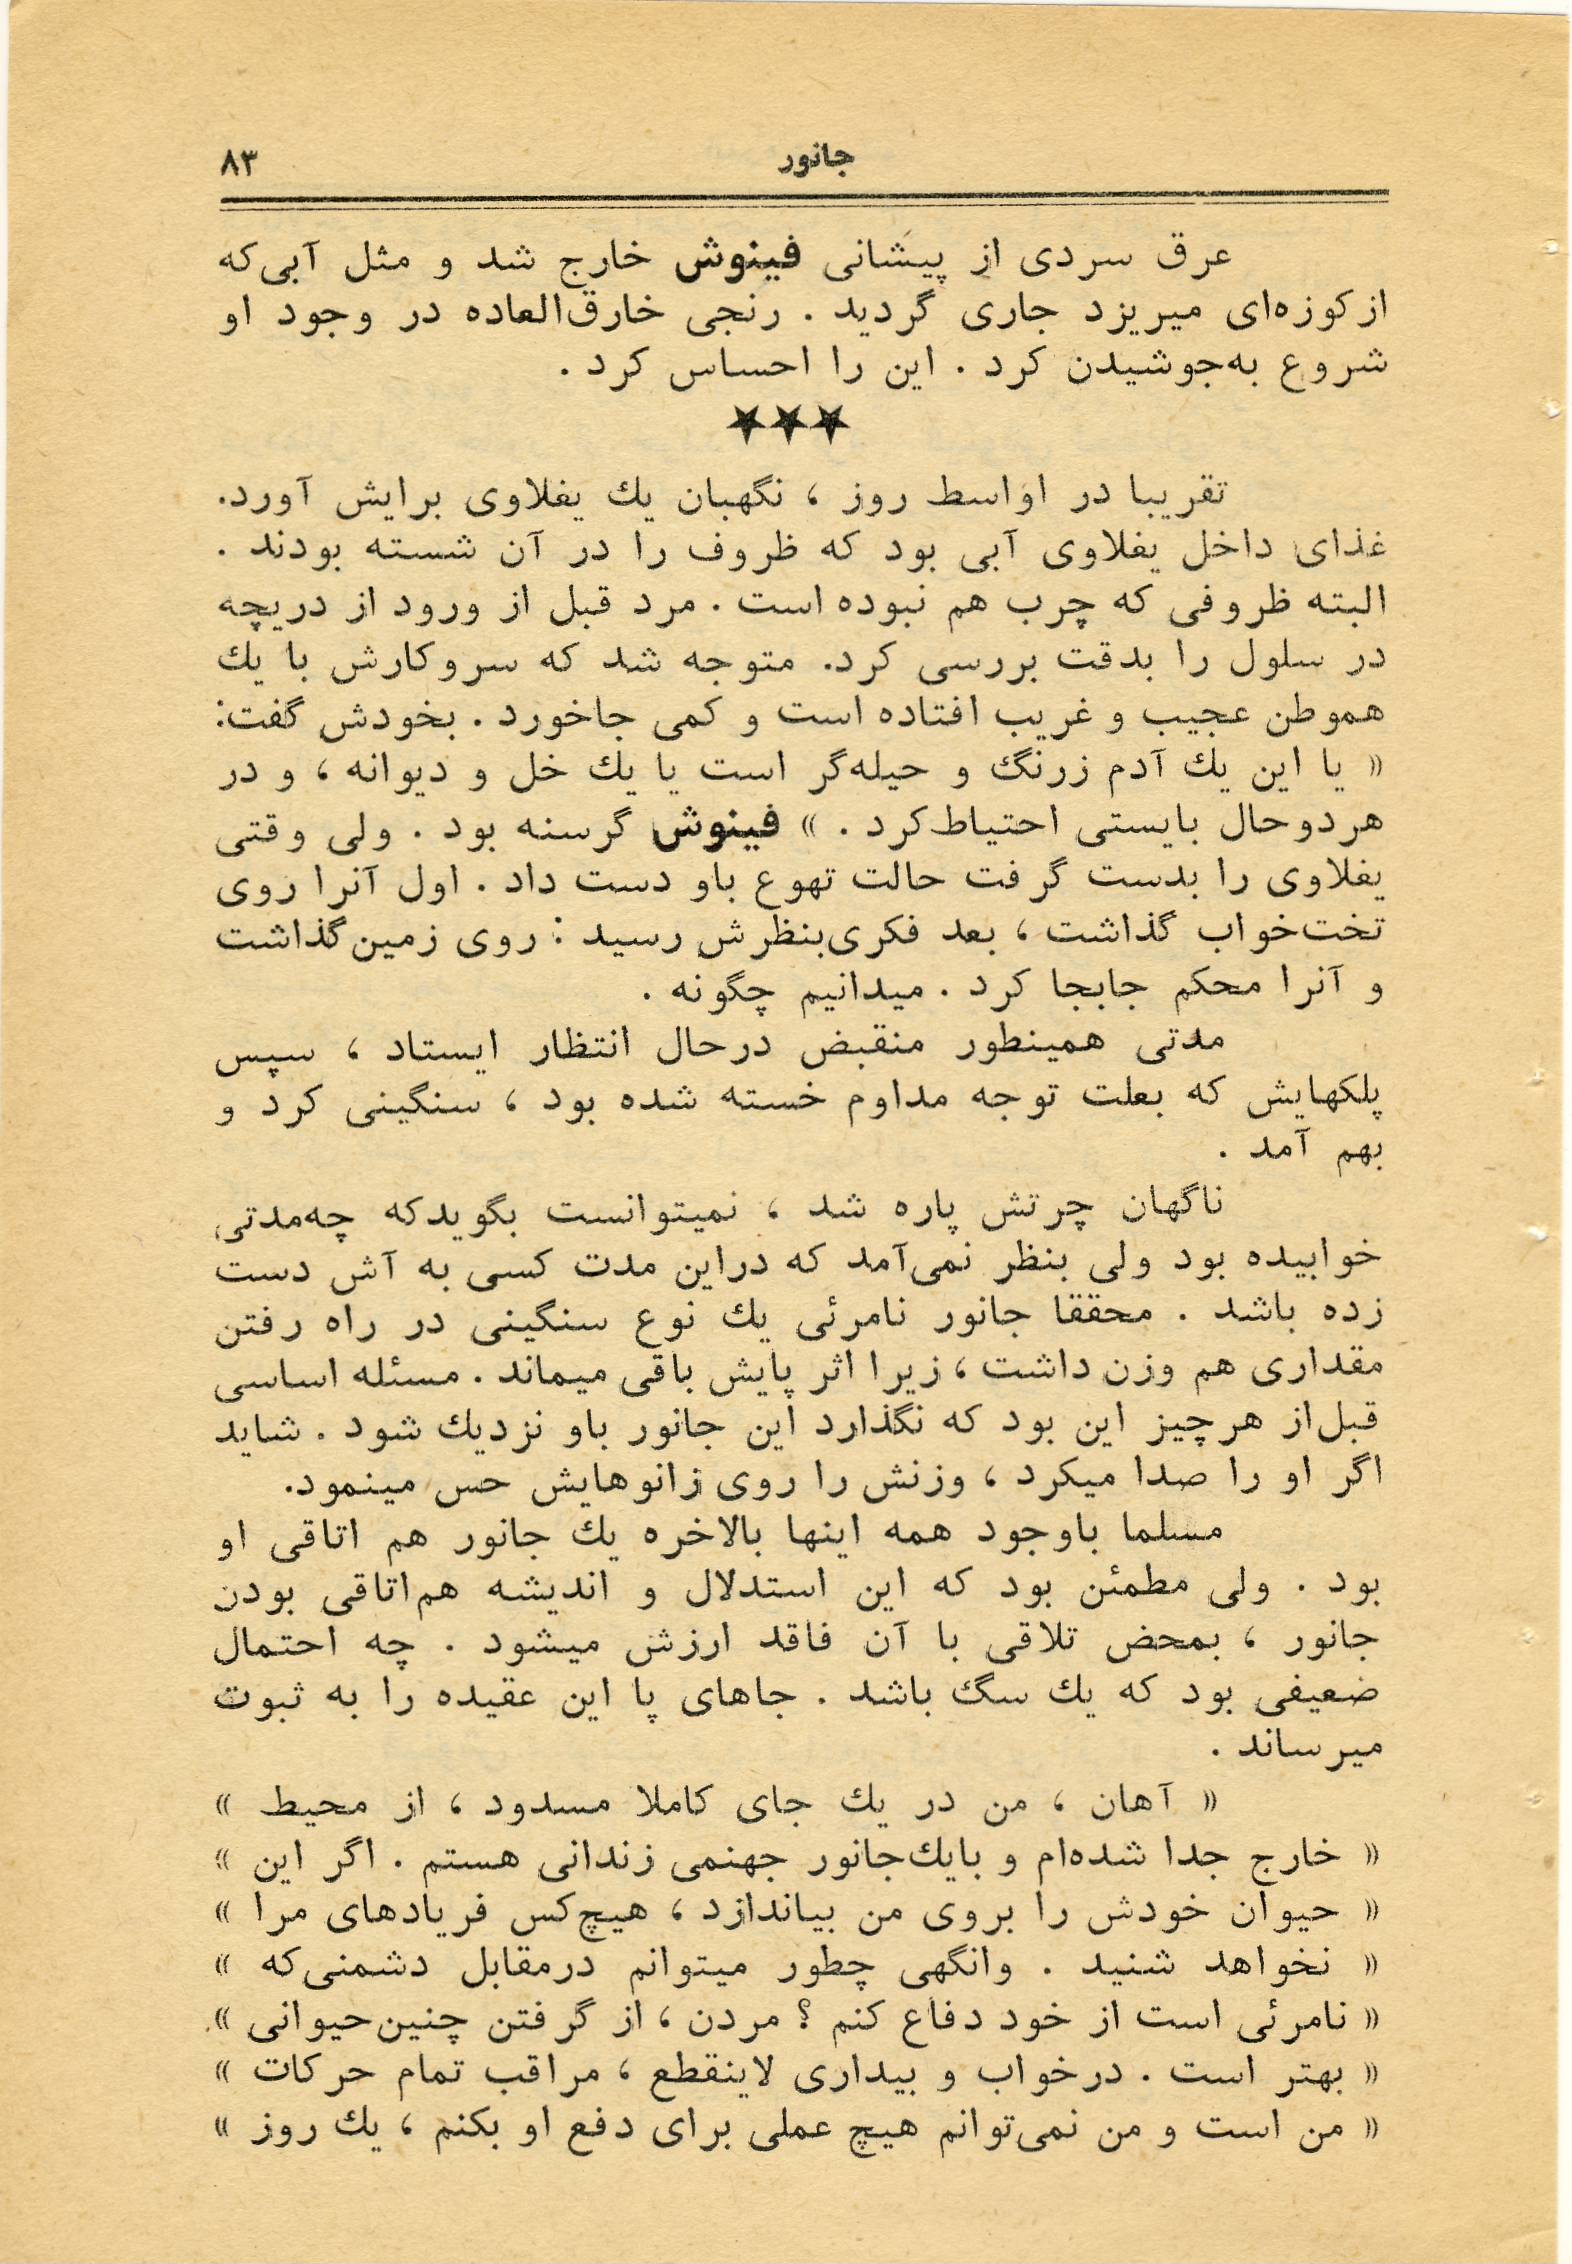 جانور
۸۳
عرق سردی از پیشانی فینوش خارج شد و مثل آبی‌که
از کوزه‌ای میریزد جاری گردید . رنجی خارق‌العاده در وجود او
شروع به‌جوشیدن کرد . این را احساس کرد .
★★★
تقریبا در اواسط روز ، نگهبان یك یغلاوی برایش آورد.
غذای داخل یغلاوی آبی بود که ظروف را در آن شسته بودند .
البته ظروفی که چرب هم نبوده است . مرد قبل از ورود از دریچه
در سلول را بدقت بررسی کرد. متوجه شد که سروکارش با یك
هموطن عجیب و غریب افتاده است و کمی جاخورد . بخودش گفت:
« یا این یك آدم زرنگ و حیله‌گر است یا یك خل و دیوانه ، و در
هردوحال بایستی احتیاط‌کرد . » فینوش گرسنه بود . ولی وقتی
یغلاوی را بدست گرفت حالت تهوع باو دست داد . اول آنرا روی
تخت‌خواب گذاشت ، بعد فکری‌بنظرش رسید : روی زمین‌گذاشت
و آنرا محکم جابجا کرد . میدانیم چگونه .
مدتی همینطور منقبض درحال انتظار ایستاد ، سپس
پلکهایش که بعلت توجه مداوم خسته شده بود ، سنگینی کرد و
بهم آمد .
ناگهان چرتش پاره شد ، نمیتوانست بگوید‌که چه‌مدتی
خوابیده بود ولی بنظر نمی‌آمد که دراین مدت کسی به آش دست
زده باشد . محققا جانور نامرئی یك نوع سنگینی در راه رفتن
مقداری هم وزن داشت ، زیرا اثر پایش باقی میماند . مسئله اساسی
قبل‌از هرچیز این بود که نگذارد این جانور باو نزدیك شود . شاید
اگر او را صدا میکرد ، وزنش را روی زانوهایش حس مینمود.
مسلما باوجود همه اینها بالاخره یك جانور هم اتاقی او
بود . ولی مطمئن بود که این استدلال و اندیشه هم‌اتاقی بودن
جانور ، بمحض تلاقی با آن فاقد ارزش میشود . چه احتمال
ضعیفی بود که یك سگ باشد . جاهای پا این عقیده را به ثبوت
میرساند .
« آهان ، من در یك جای کاملا مسدود ، از محیط »
« خارج جدا شده‌ام و بایك‌جانور جهنمی زندانی هستم . اگر این »
« حیوان خودش را بروی من بیاندازد ، هیچ‌کس فریادهای مرا »
« نخواهد شنید . وانگهی چطور میتوانم درمقابل دشمنی‌که »
« نامرئی است از خود دفاع کنم ؟ مردن ، از گرفتن چنین‌حیوانی »
« بهتر است . درخواب و بیداری لاینقطع ، مراقب تمام حرکات »
« من است و من نمی‌توانم هیچ عملی برای دفع او بکنم ، یك روز »